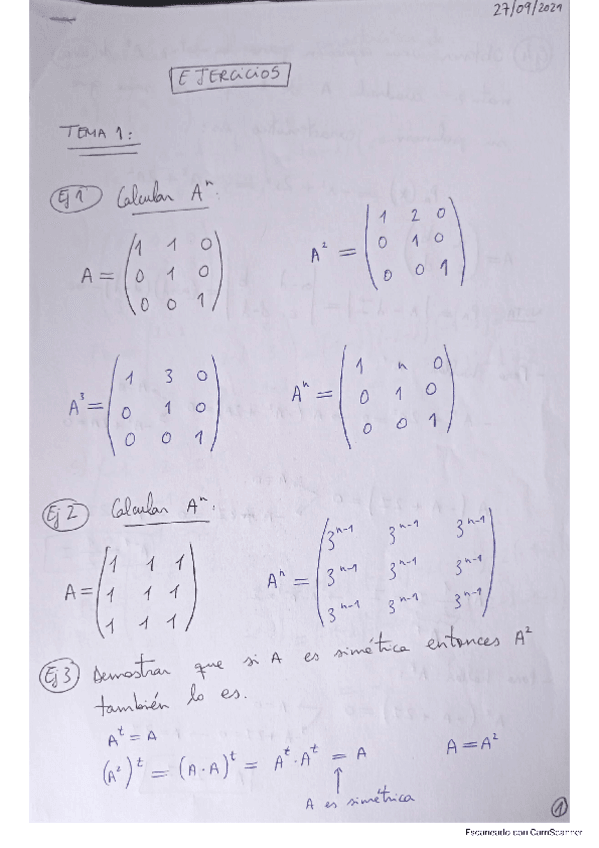 27/09/2021
EJERCICIOS
TEMA 1:
Ej 1 Calcular Aⁿ.
A = (1 1 0
0 1 0
0 0 1)
A² = (1 2 0
0 1 0
0 0 1)
A³ = (1 3 0
0 1 0
0 0 1)
Aⁿ = (1 n 0
0 1 0
0 0 1)
Ej 2 Calcular Aⁿ.
A = (1 1 1
1 1 1
1 1 1)
Aⁿ = (3ⁿ⁻¹ 3ⁿ⁻¹ 3ⁿ⁻¹
3ⁿ⁻¹ 3ⁿ⁻¹ 3ⁿ⁻¹
3ⁿ⁻¹ 3ⁿ⁻¹ 3ⁿ⁻¹)
Ej 3 Demostrar que si A es simética entonces A²
también lo es.
Aᵗ = A
(A²)ᵗ = (A·A)ᵗ = Aᵗ·Aᵗ = A A = A²
↑
A es simétrica
1
Escaneado con CamScanner